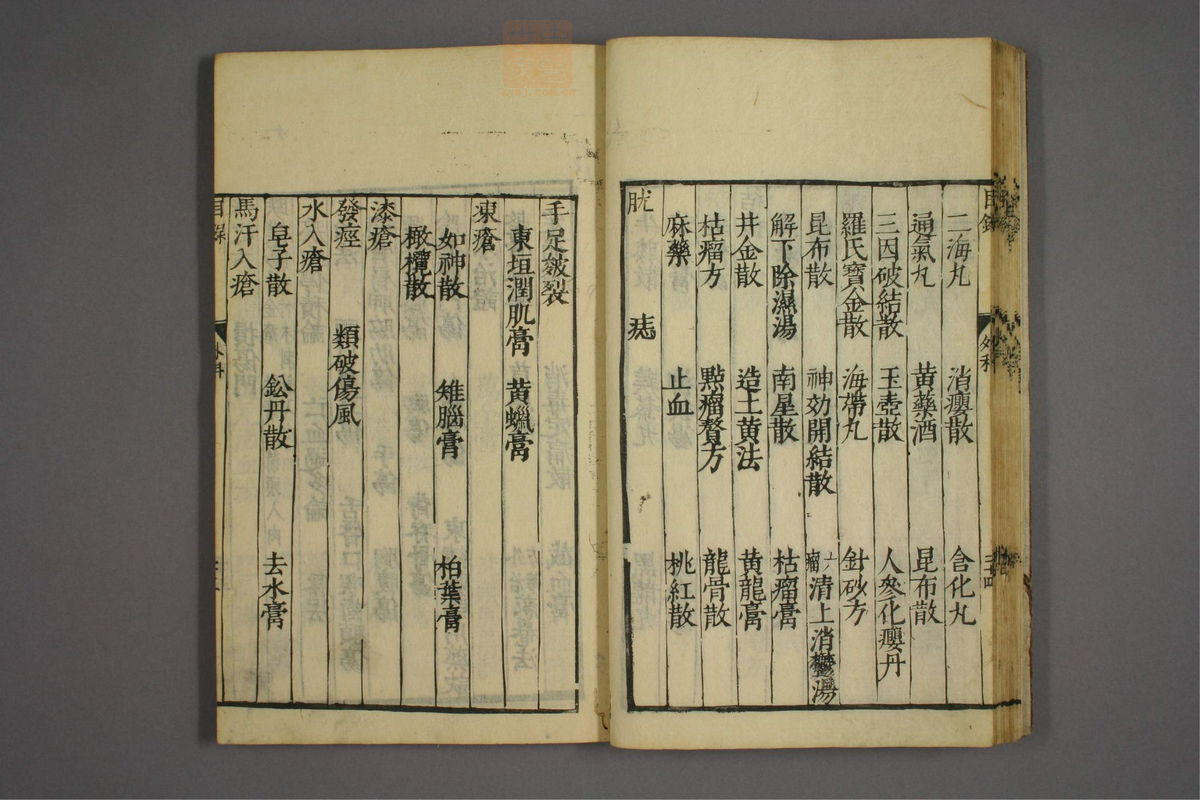 目錄 外科 二十四
二海丸 消癭散 含化丸
通氣丸 黃藥酒 昆布散
三因破結散 玉壺散 人參化癭丹
羅氏寶金散 海帶丸 針砂方
昆布散 神効開結散 六瘤 清上消鬱湯
解下除濕湯 南星散 枯瘤膏
井金散 造土黃法 黃龍膏
枯瘤方 點瘤贅方 龍骨散
麻藥 止血 桃紅散
胱 痣
手足皴裂
東垣潤肌膏 黃蠟膏
凍瘡
如神散 雉腦膏 柏葉膏
橄欖散
漆瘡
發痙 類破傷風
水入瘡
皂子散 鈆丹散 去水膏
馬汗入瘡
目錄 外科